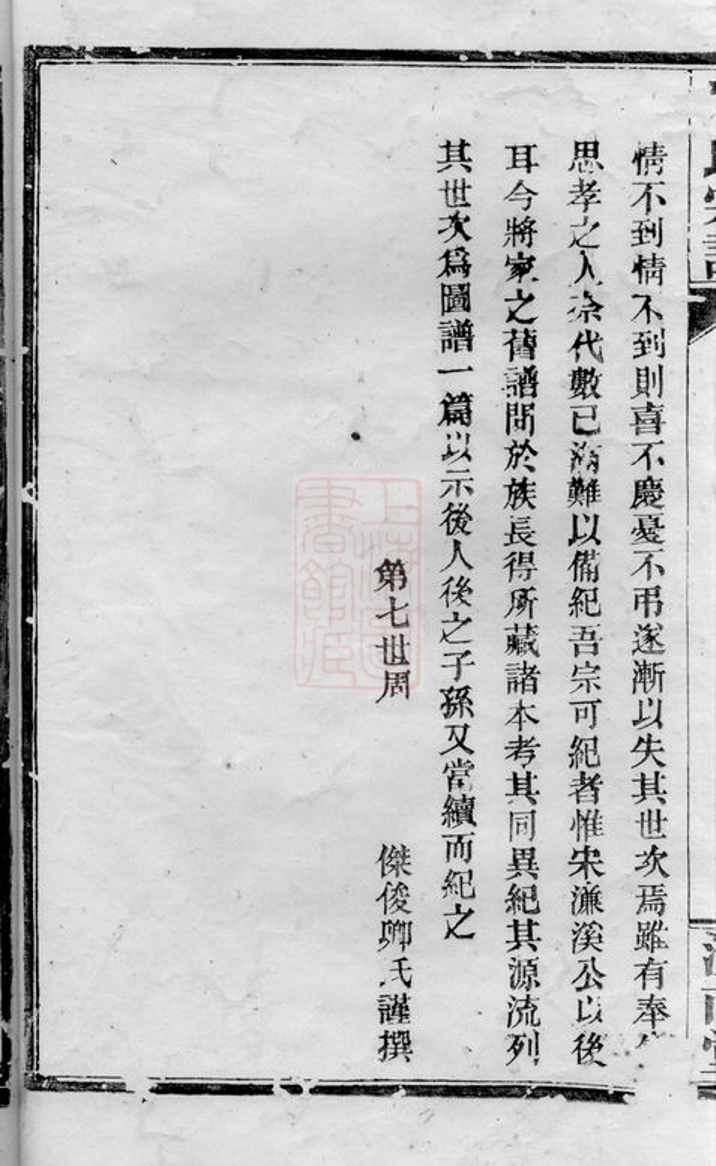 情不到情不到則喜不慶憂不弔遂漸以失其世次焉雖有奉
思孝之人奈代數已滿難以備紀吾宗可紀者惟宋濂溪公以後
耳今將家之舊譜問於族長得所藏諸本考其同異紀其源流列
其世次為圖譜一篇以示後人後之子孫又當續而紀之
第七世周
傑俊卿氏謹撰
上海圖書館藏